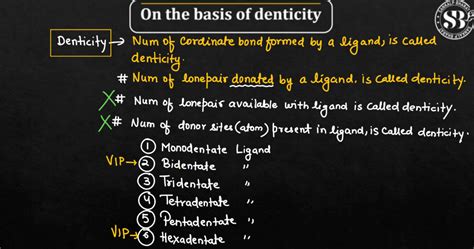 On the basis of denticity
SB
Denticity → Num of Cordinate bond formed by a ligand, is called
denticity.
# Num of lonepair donated by a ligand. is called denticity.
X # Num of lonepair available with ligand is called denticity.
X # Num of donor sites (atom) present in ligand, is called denticity.
① Monodentate Ligand
VIP → ② Bidentate "
③ Tridentate "
④ Tetradentate "
⑤ Pentadentate "
VIP → ⑥ Hexadentate "